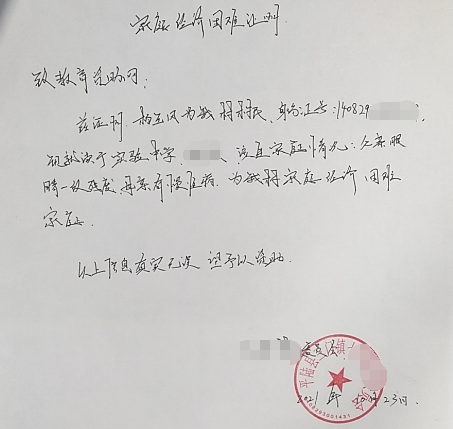 家庭经济困难证明
致教育资助网:
兹证明,为我村村民,身份证号:140829
现就读于实验中学,该生家庭情况:父亲眼
睛一级残疾,母亲有慢性病,为我村家庭经济困难
家庭.
以上信息真实无误 望予以资助.
委员会
平陆县 镇
2021年10月23日.